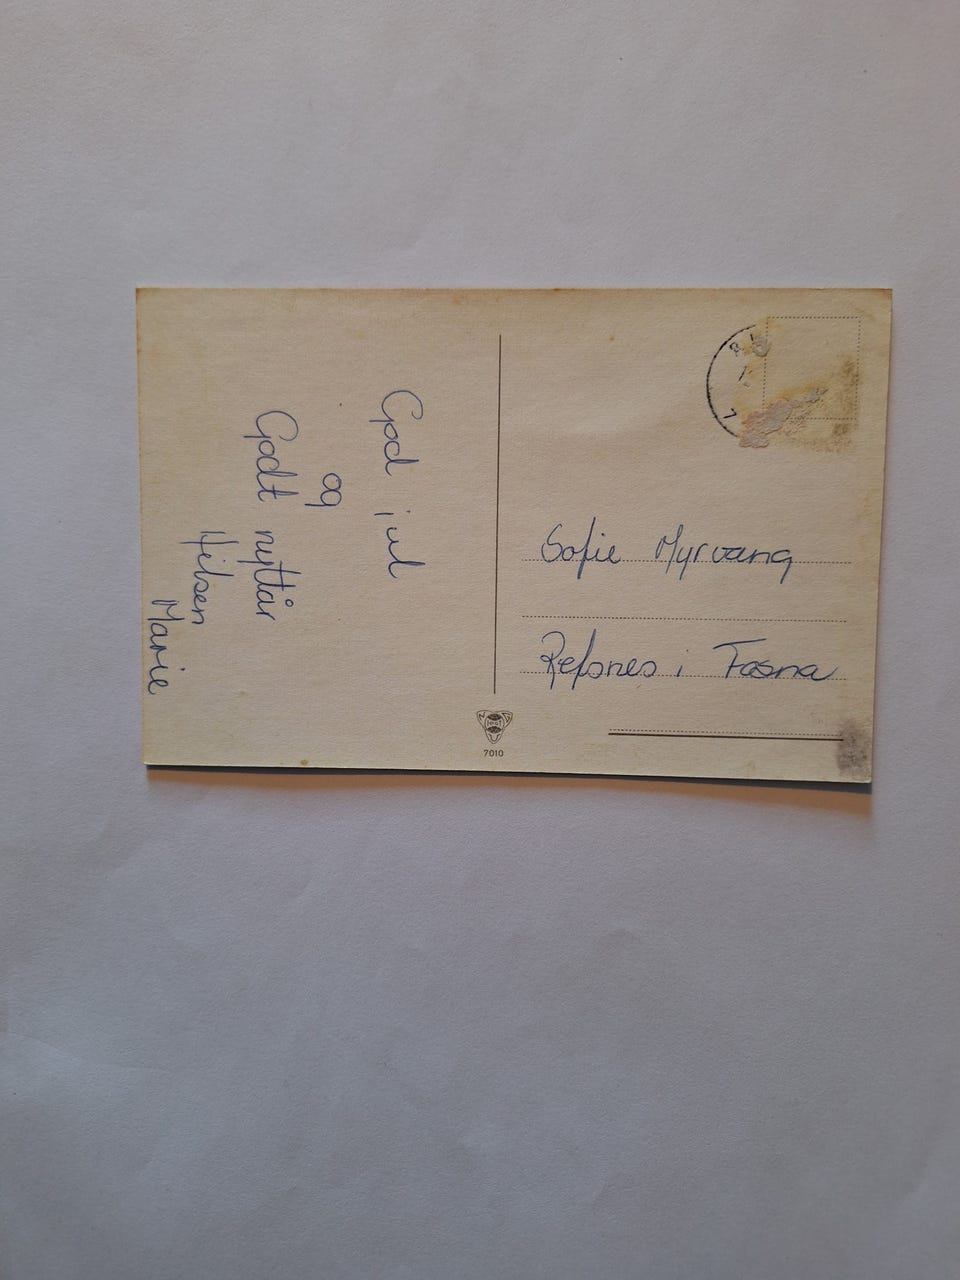 God jul
og
Godt nyttår
Hilsen
Marie
Sofie Myrvang
Refsnes i Fosna
7010